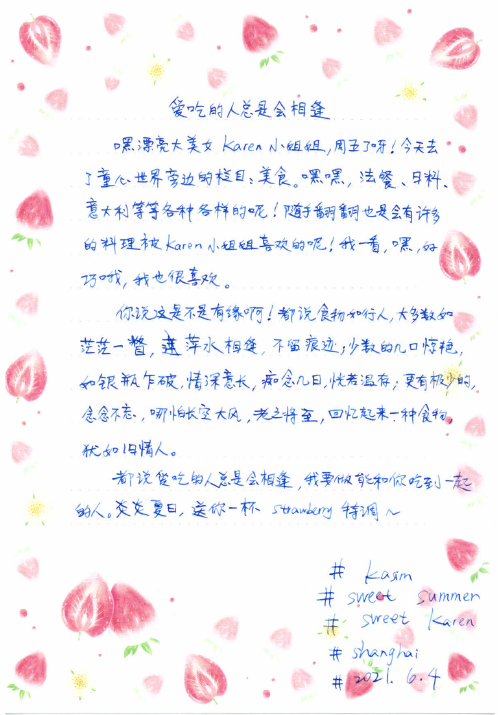 爱吃的人总是会相逢
嘿漂亮大美女Karen小姐姐,周五了呀!今天去
了童心世界旁边的栏目:美食。嘿嘿,法餐、日料、
意大利等等各种各样的呢!随手翻翻也是会有许多
的料理被Karen小姐姐喜欢的呢!我一看,嘿,好
巧哦,我也很喜欢。
你说这是不是有缘啊!都说食物如行人,大多数如
茫茫一瞥,萍水相逢,不留痕迹;少数的几口惊艳,
如银瓶乍破,情深意长,痴念几日,恍若温存;更有极少的,
念念不忘,哪怕长空大风,老之将至,回忆起来一种食物,
犹如旧情人。
都说爱吃的人总是会相逢,我要做能和你吃到一起
的人。炎炎夏日,送你一杯 strawberry 特调~
# kasim
# sweet summer
# sweet Karen
# shanghai
# 2021. 6. 4